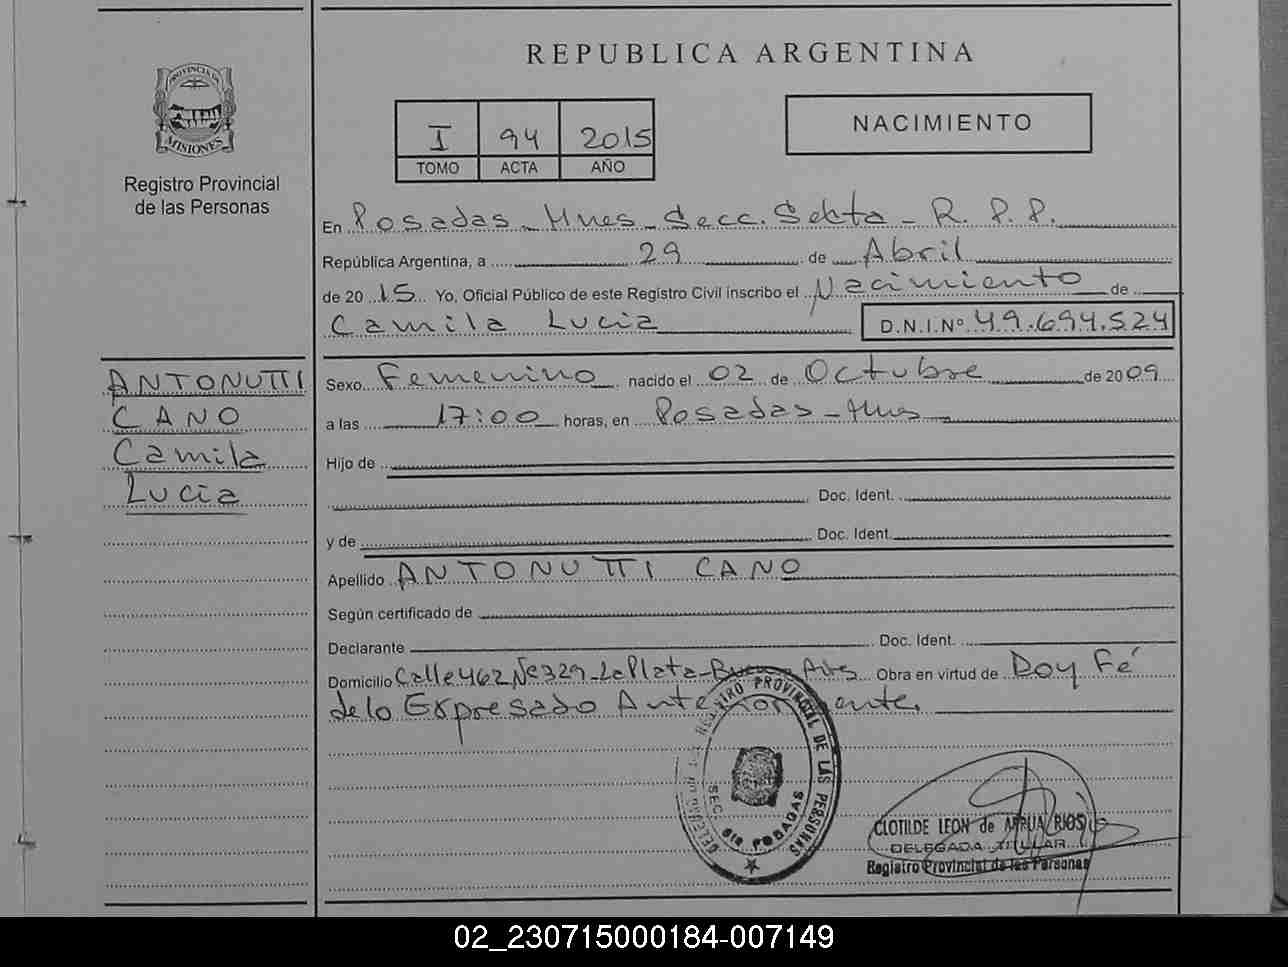 REPUBLICA ARGENTINA
PROVINCIA DE
MISIONES
Registro Provincial
de las Personas
I 94 2015
TOMO ACTA AÑO
NACIMIENTO
En Posadas - Mnes - Secc. Sexta - R. P. P.
República Argentina, a 29 de Abril
de 2015 Yo, Oficial Público de este Registro Civil inscribo el Nacimiento de
Camila Lucia D.N.I.Nº 49.694.524
ANTONUTTI
CANO
Camila
Lucia
Sexo Femenino nacido el 02 de Octubre de 2009
a las 17:00 horas, en Posadas - Mnes
Hijo de
Doc. Ident.
y de Doc. Ident.
Apellido ANTONUTTI CANO
Según certificado de
Declarante Doc. Ident.
Domicilio Calle 462 Nº 329 - La Plata - Obra en virtud de Doy Fé
de lo Expresado Anteriormente.
REGISTRO PROVINCIAL DE LAS PERSONAS
POSADAS
CLOTILDE LEON de ARRUA RIOS
DELEGADA TITULAR
Registro Provincial de las Personas
02_230715000184-007149